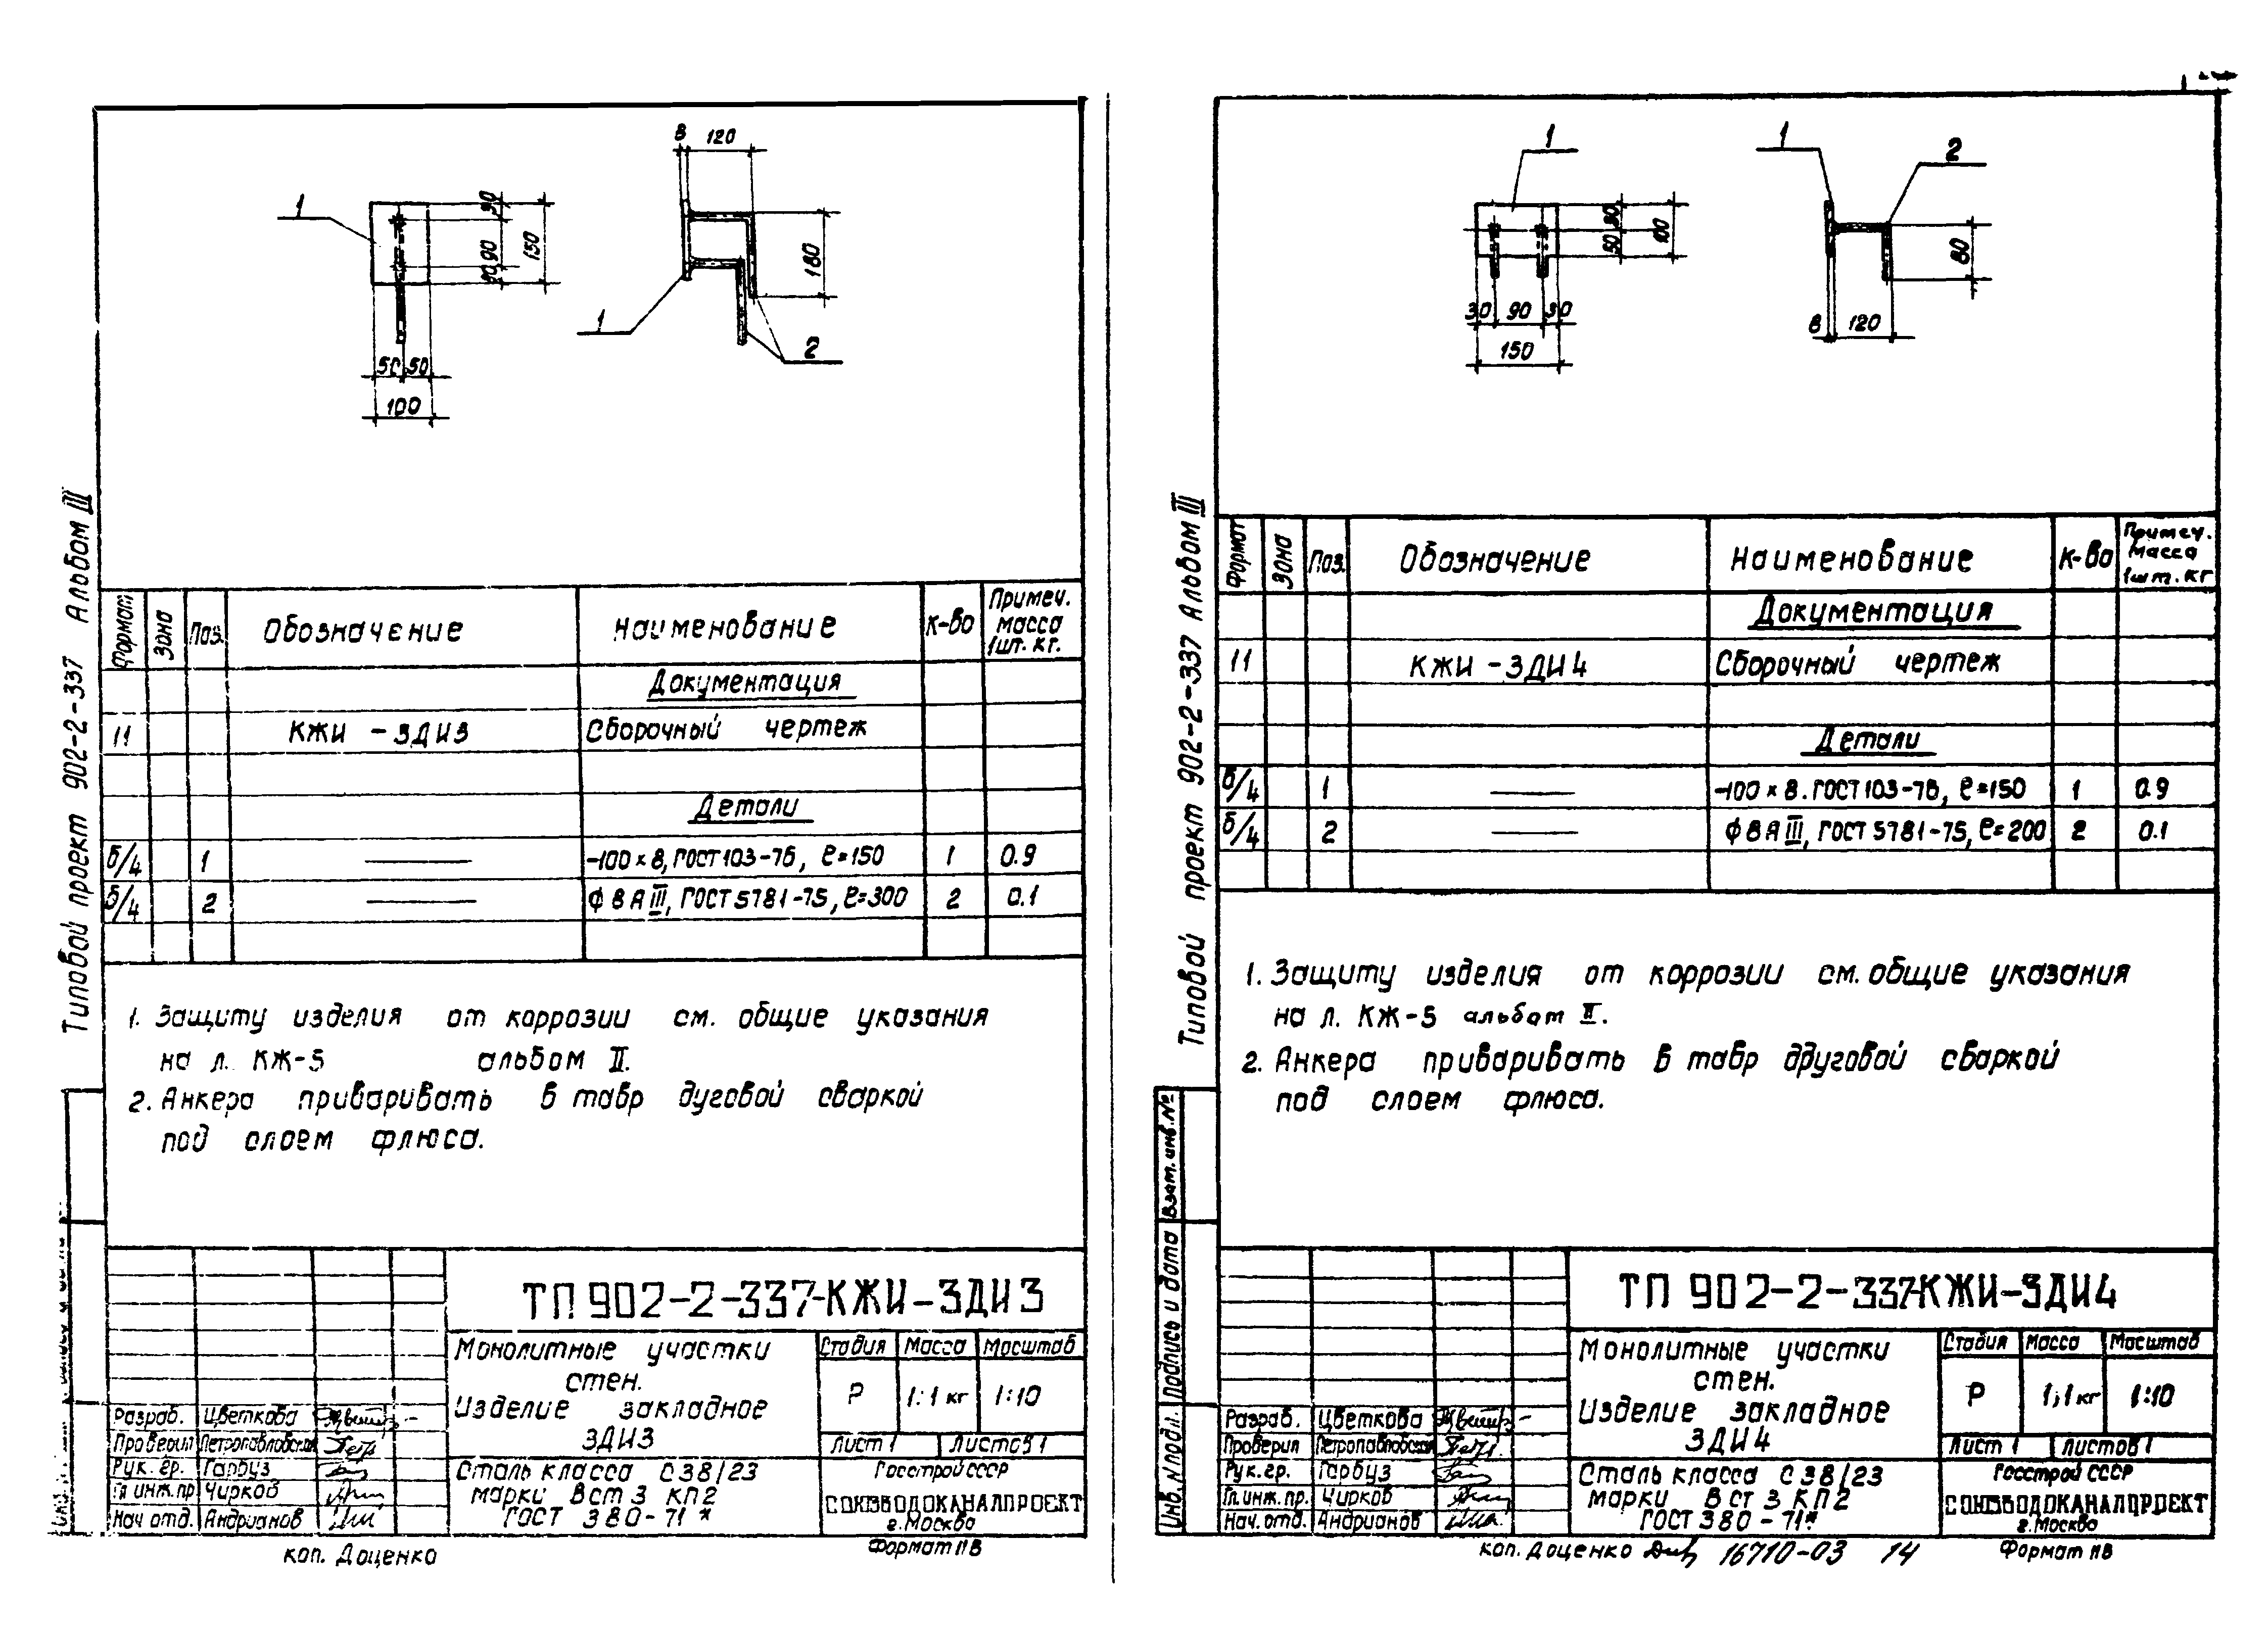 Типовой проект 902-2-337 Альбом III
1
30
90
30
150
50 50
100
8 120
180
1
2
Формат Зона Поз. Обозначение Наименование К-во Примеч. масса 1шт. кг.
Документация
11 КЖИ-ЗДИ3 Сборочный чертеж
Детали
б/4 1 —— -100×8, ГОСТ 103-76, ℓ=150 1 0.9
б/4 2 —— Ф8АIII, ГОСТ 5781-75, ℓ=300 2 0.1
1. Защиту изделия от коррозии см. общие указания
на л. КЖ-5 альбом II.
2. Анкера приваривать в тавр дуговой сваркой
под слоем флюса.
ТП 902-2-337-КЖИ-ЗДИ3
Монолитные участки
стен.
Изделие закладное
ЗДИ3
Стадия Масса Масштаб
Р 1:1 кг 1:10
Лист 1 Листов 1
Разраб. Цветкова
Проверил Петропавловская
Рук. гр. Гарбуз
Гл. инж. пр. Чирков
Нач. отд. Андрианов
Сталь класса С38/23
марки ВСт3КП2
ГОСТ 380-71*
Госстрой СССР
СОЮЗВОДОКАНАЛПРОЕКТ
г. Москва
коп. Доценко
Формат 11В
Типовой проект 902-2-337 Альбом III
1
50
100
30 90 30
150
1
2
80
8 120
Формат Зона Поз. Обозначение Наименование К-во Примеч. Масса 1шт. кг
Документация
11 КЖИ-ЗДИ4 Сборочный чертеж
Детали
б/4 1 —— -100×8. ГОСТ 103-76, ℓ=150 1 0.9
б/4 2 —— Ф8АIII, ГОСТ 5781-75, ℓ=200 2 0.1
1. Защиту изделия от коррозии см. общие указания
на л. КЖ-5 альбом II.
2. Анкера приваривать в тавр ддуговой сваркой
под слоем флюса.
Инв. N подл. Подпись и дата Взам. инв. №
ТП 902-2-337-КЖИ-ЗДИ4
Монолитные участки
стен.
Изделие закладное
ЗДИ4
Стадия Масса Масштаб
Р 1,1 кг 1:10
Лист 1 Листов 1
Разраб. Цветкова
Проверил Петропавловская
Рук. гр. Гарбуз
Гл. инж. пр. Чирков
Нач. отд. Андрианов
Сталь класса С38/23
марки ВСт3КП2
ГОСТ 380-71*
Госстрой СССР
СОЮЗВОДОКАНАЛПРОЕКТ
г. Москва
коп. Доценко 16710-03 14
Формат 11В